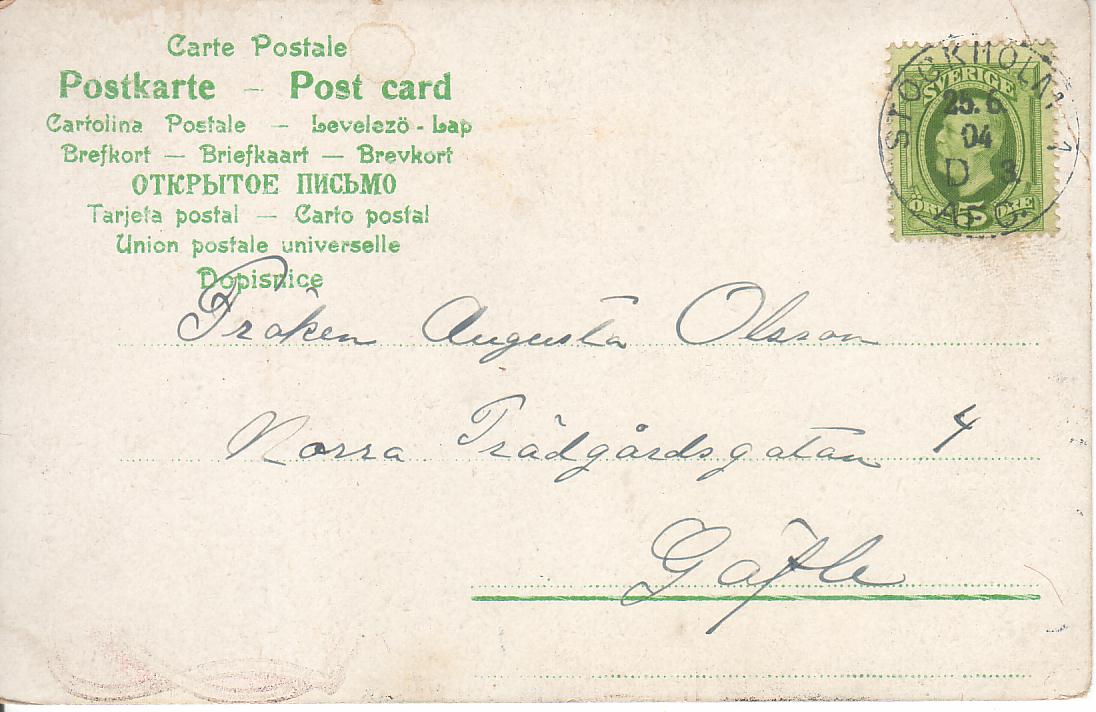 Carte Postale
Postkarte — Post card
Cartolina Postale — Levelezö-Lap
Brefkort — Briefkaart — Brevkort
ОТКРЫТОЕ ПИСЬМО
Tarjeta postal — Carto postal
Union postale universelle
Dopisnice
SVERIGE
5
ÖRE ÖRE
STOCKHOLM 1
25. 6
04
D 3
A. C.
Fröken Augusta Olsson
Norra Trädgårdsgatan 4
Gäfle